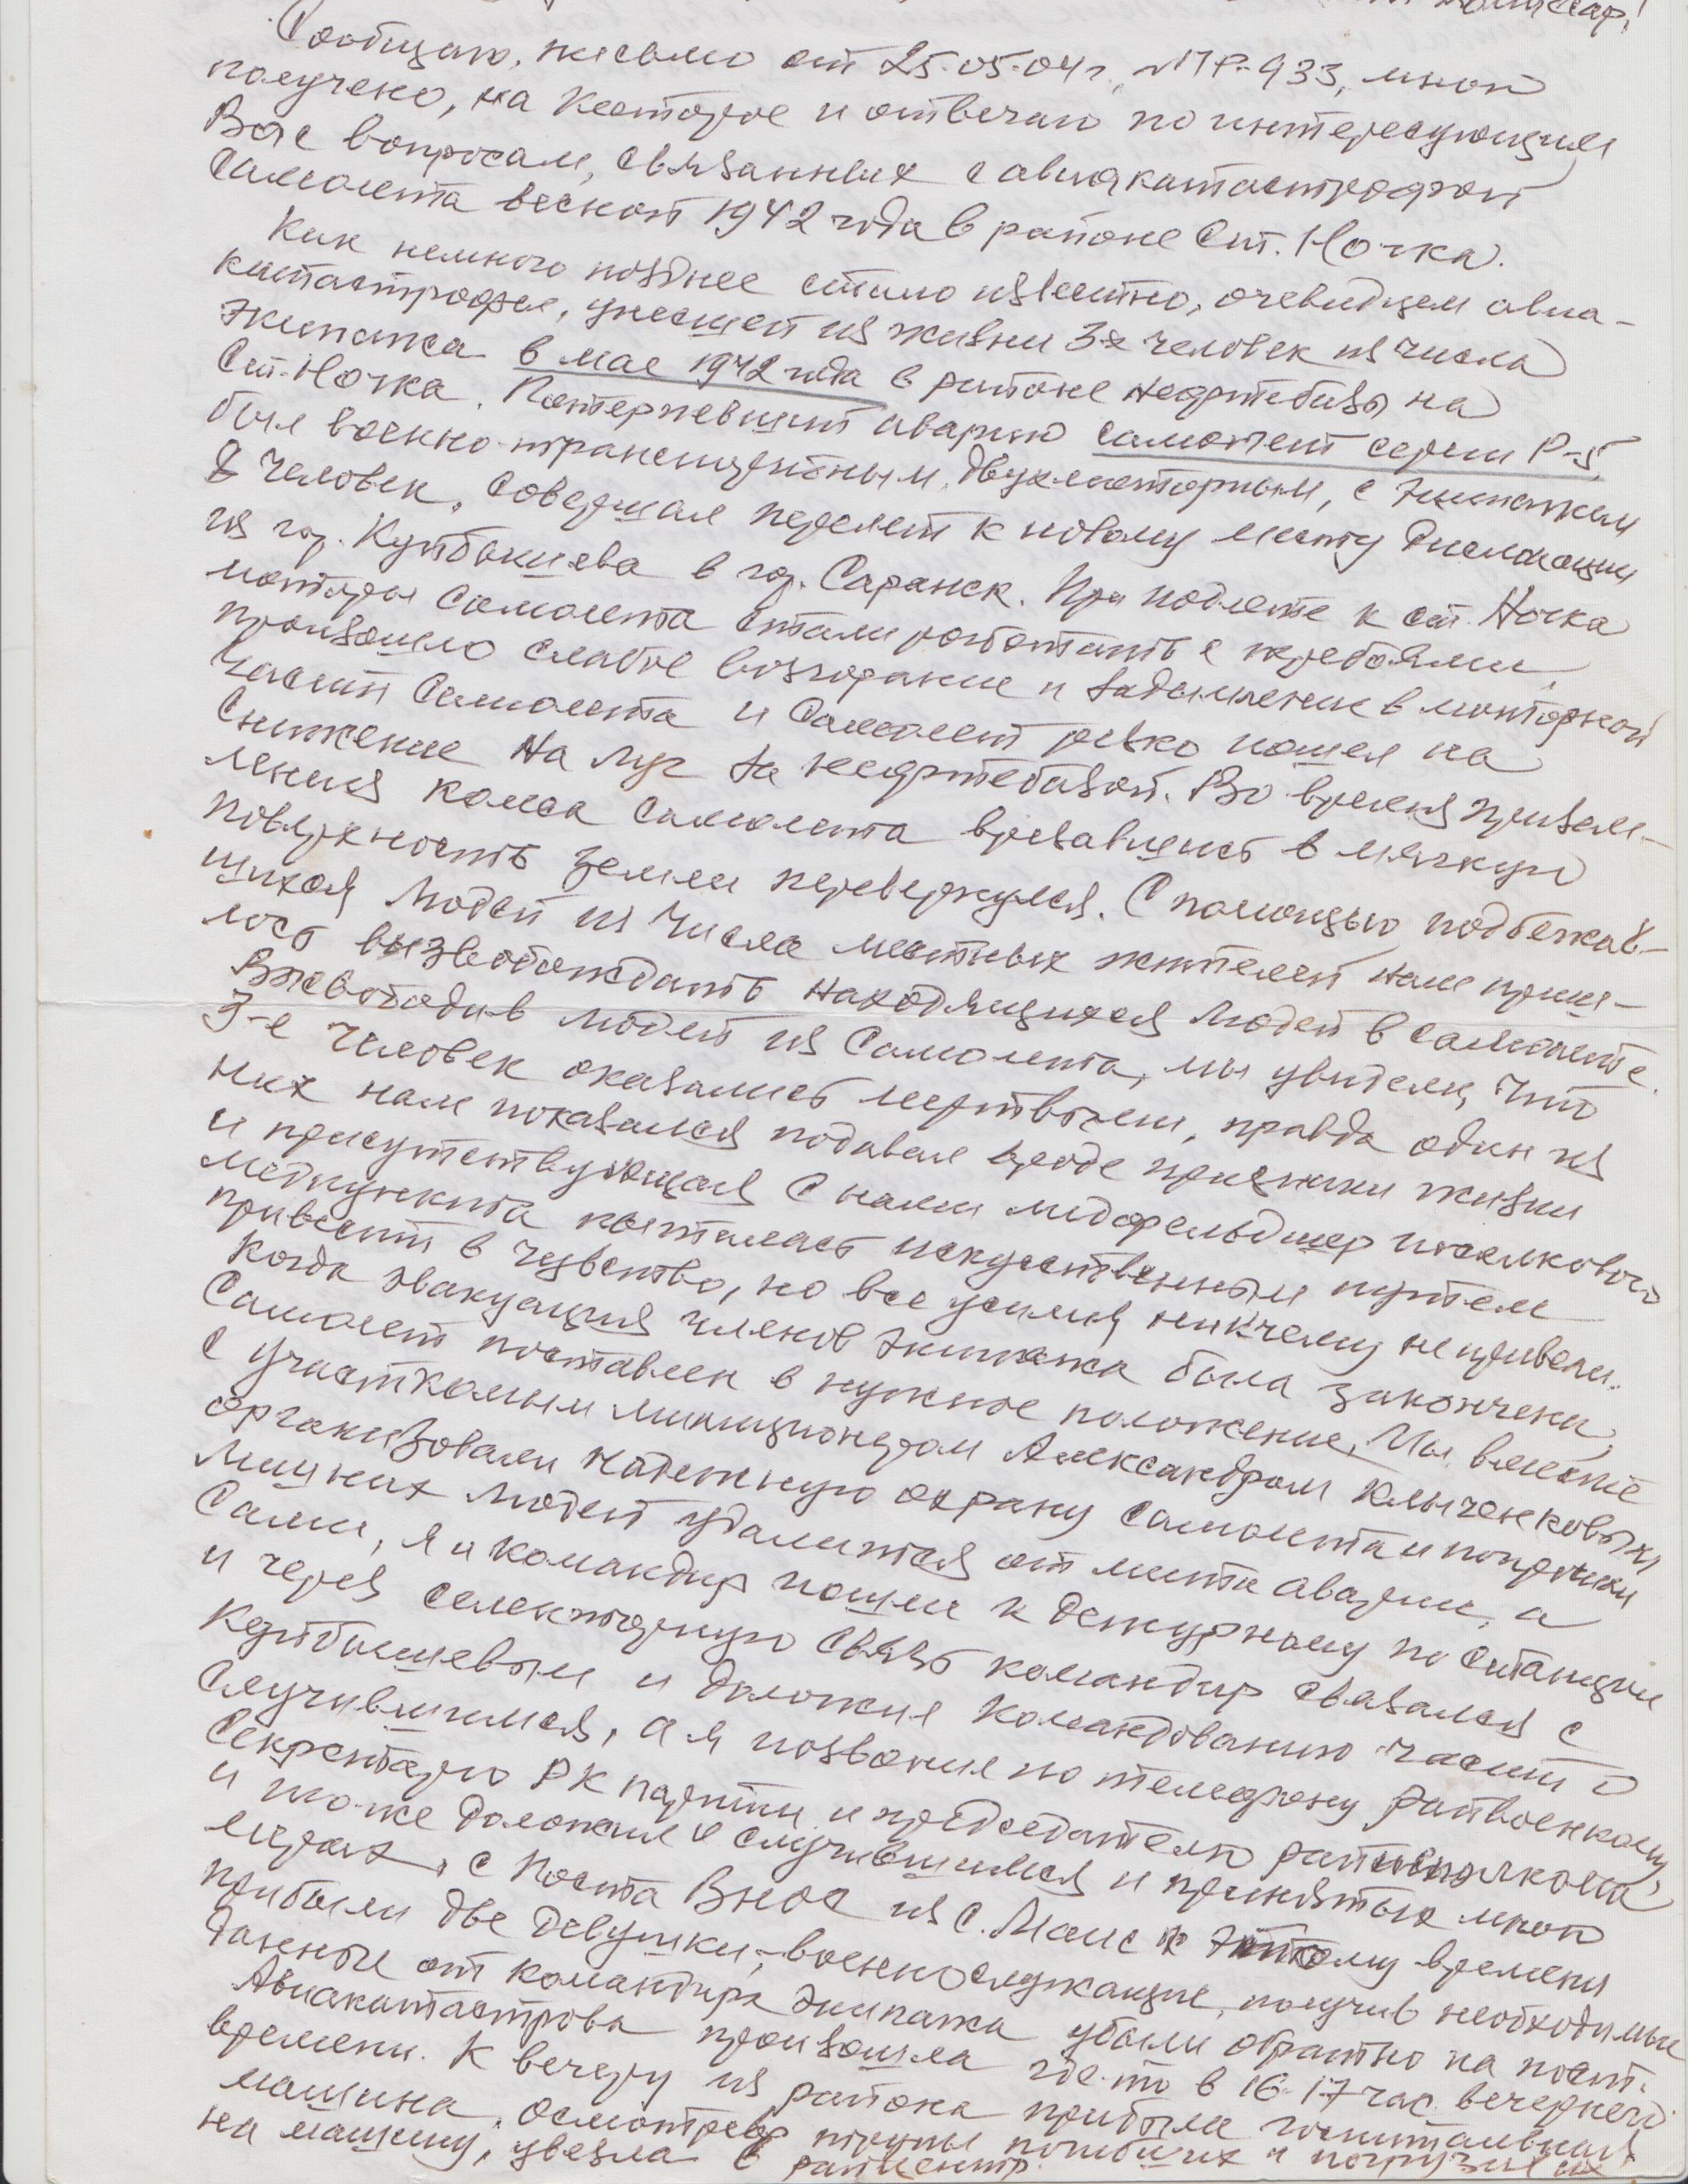 комиссар!
Сообщаю, письмо от 25.05.04 г. № П Р-933, мной
получено, на которое и отвечаю по интересующим
Вас вопросам, связанных с авиакатастрофой
самолета весной 1942 года в районе ст. Ночка.
Как немного позднее стало известно, очевидцем авиа-
катастрофы, унесшей из жизни 3-х человек из числа
экипажа в мае 1942 года в районе нефтебазы на
ст. Ночка. Потерпевший аварию самолет серии Р-5
был военно-транспортным, двухмоторным, с экипажем
8 человек, совершал перелет к новому месту дислокации
из гор. Куйбышева в гор. Саранск. При подлете к ст. Ночка
моторы самолета стали работать с перебоями,
произошло слабое возгорание и задымление в моторной
части самолета и самолет резко пошел на
снижение на луг за нефтебазой. Во время призем-
ления колеса самолета врезавшись в мягкую
поверхность земли перевернулся. С помощью подбежав-
шихся людей из числа местных жителей нам приш-
лось вызвобождать находящихся людей в самолете.
Высвободив людей из самолета, мы увидели, что
3-е человек оказались мертвыми, правда один из
них нам показался подавал вроде признаки жизни
и присутствующая с нами медфельдшер поселкового
медпункта пыталась искуственным путем
привести в чувство, но все усилия ник чему не привели.
Когда эвакуация членов экипажа была закончена,
самолет поставлен в нужное положение. Мы вместе
с участковым милиционером Александром Клыченковым
организовали надежную охрану самолета и попросили
лишних людей удалиться от места аварии, а
сами, я и командир пошли к дежурному по станции
и через селекторную связь командир связался с
Куйбышевым и доложил командованию части о
случившимся, а я позвонил по телефону райвоенкому,
секретарю РК партии и председателю райисполкома
и то-же доложил о случившимся и принятых мной
мерах, с поста Внос из с. Маис к этому времени
прибыли две девушки, военнослужащие, получив необходимые
данные от командира экипажа убыли обратно на пост.
Авиакатастрова произошла где-то в 16-17 час. вечернего
времени. К вечеру из района прибыла госпитальная
машина, осмотрев трупы погибших и погрузив их
на машину, увезла в райцентр.